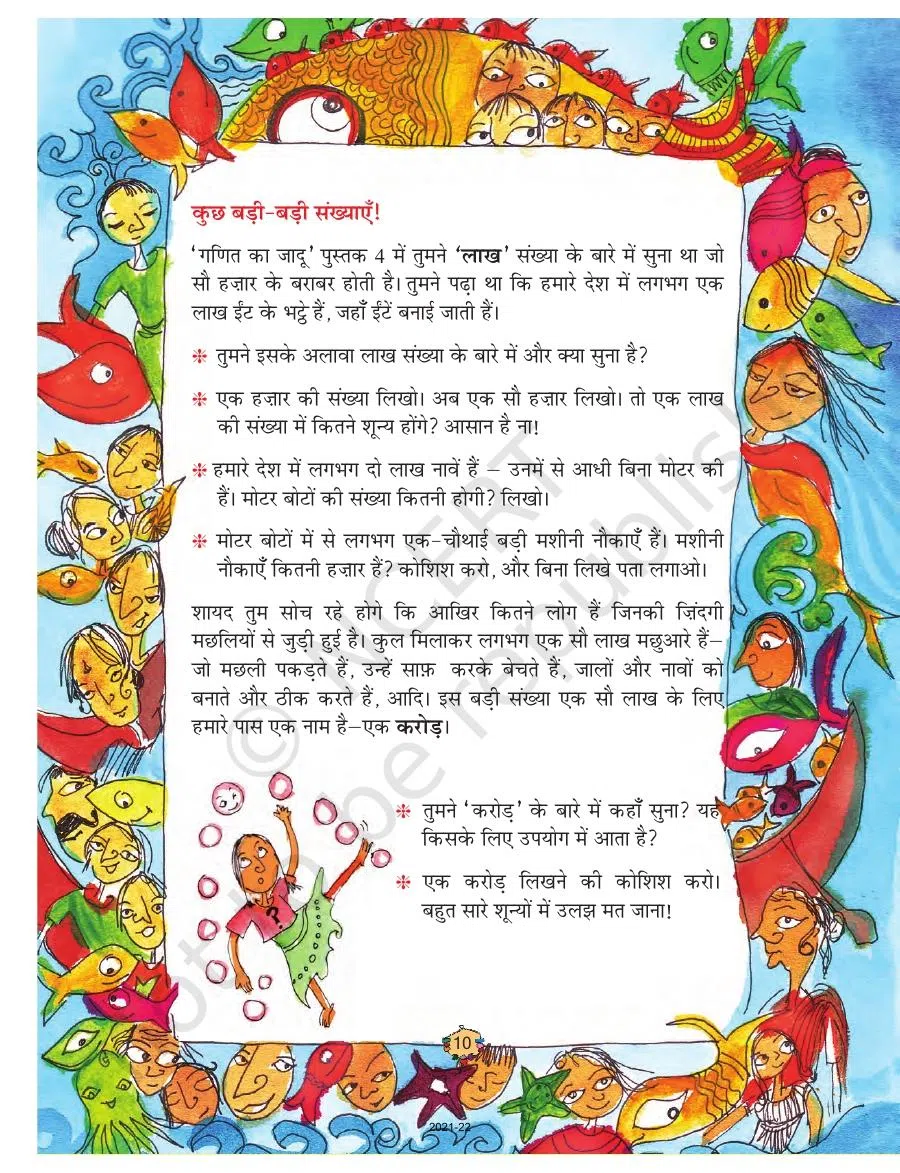 कुछ बड़ी-बड़ी संख्याएँ!
‘गणित का जादू’ पुस्तक 4 में तुमने ‘लाख’ संख्या के बारे में सुना था जो
सौ हज़ार के बराबर होती है। तुमने पढ़ा था कि हमारे देश में लगभग एक
लाख ईंट के भट्ठे हैं, जहाँ ईंटें बनाई जाती हैं।
❉ तुमने इसके अलावा लाख संख्या के बारे में और क्या सुना है?
❉ एक हज़ार की संख्या लिखो। अब एक सौ हज़ार लिखो। तो एक लाख
की संख्या में कितने शून्य होंगे? आसान है ना!
❉ हमारे देश में लगभग दो लाख नावें हैं – उनमें से आधी बिना मोटर की
हैं। मोटर बोटों की संख्या कितनी होगी? लिखो।
❉ मोटर बोटों में से लगभग एक-चौथाई बड़ी मशीनी नौकाएँ हैं। मशीनी
नौकाएँ कितनी हज़ार हैं? कोशिश करो, और बिना लिखे पता लगाओ।
शायद तुम सोच रहे होगे कि आखिर कितने लोग हैं जिनकी ज़िंदगी
मछलियों से जुड़ी हुई है। कुल मिलाकर लगभग एक सौ लाख मछुआरे हैं–
जो मछली पकड़ते हैं, उन्हें साफ़ करके बेचते हैं, जालों और नावों को
बनाते और ठीक करते हैं, आदि। इस बड़ी संख्या एक सौ लाख के लिए
हमारे पास एक नाम है–एक करोड़।
❉ तुमने ‘करोड़’ के बारे में कहाँ सुना? यह
किसके लिए उपयोग में आता है?
❉ एक करोड़ लिखने की कोशिश करो।
बहुत सारे शून्यों में उलझ मत जाना!
?
© NCERT
not to be republished
10
2021-22